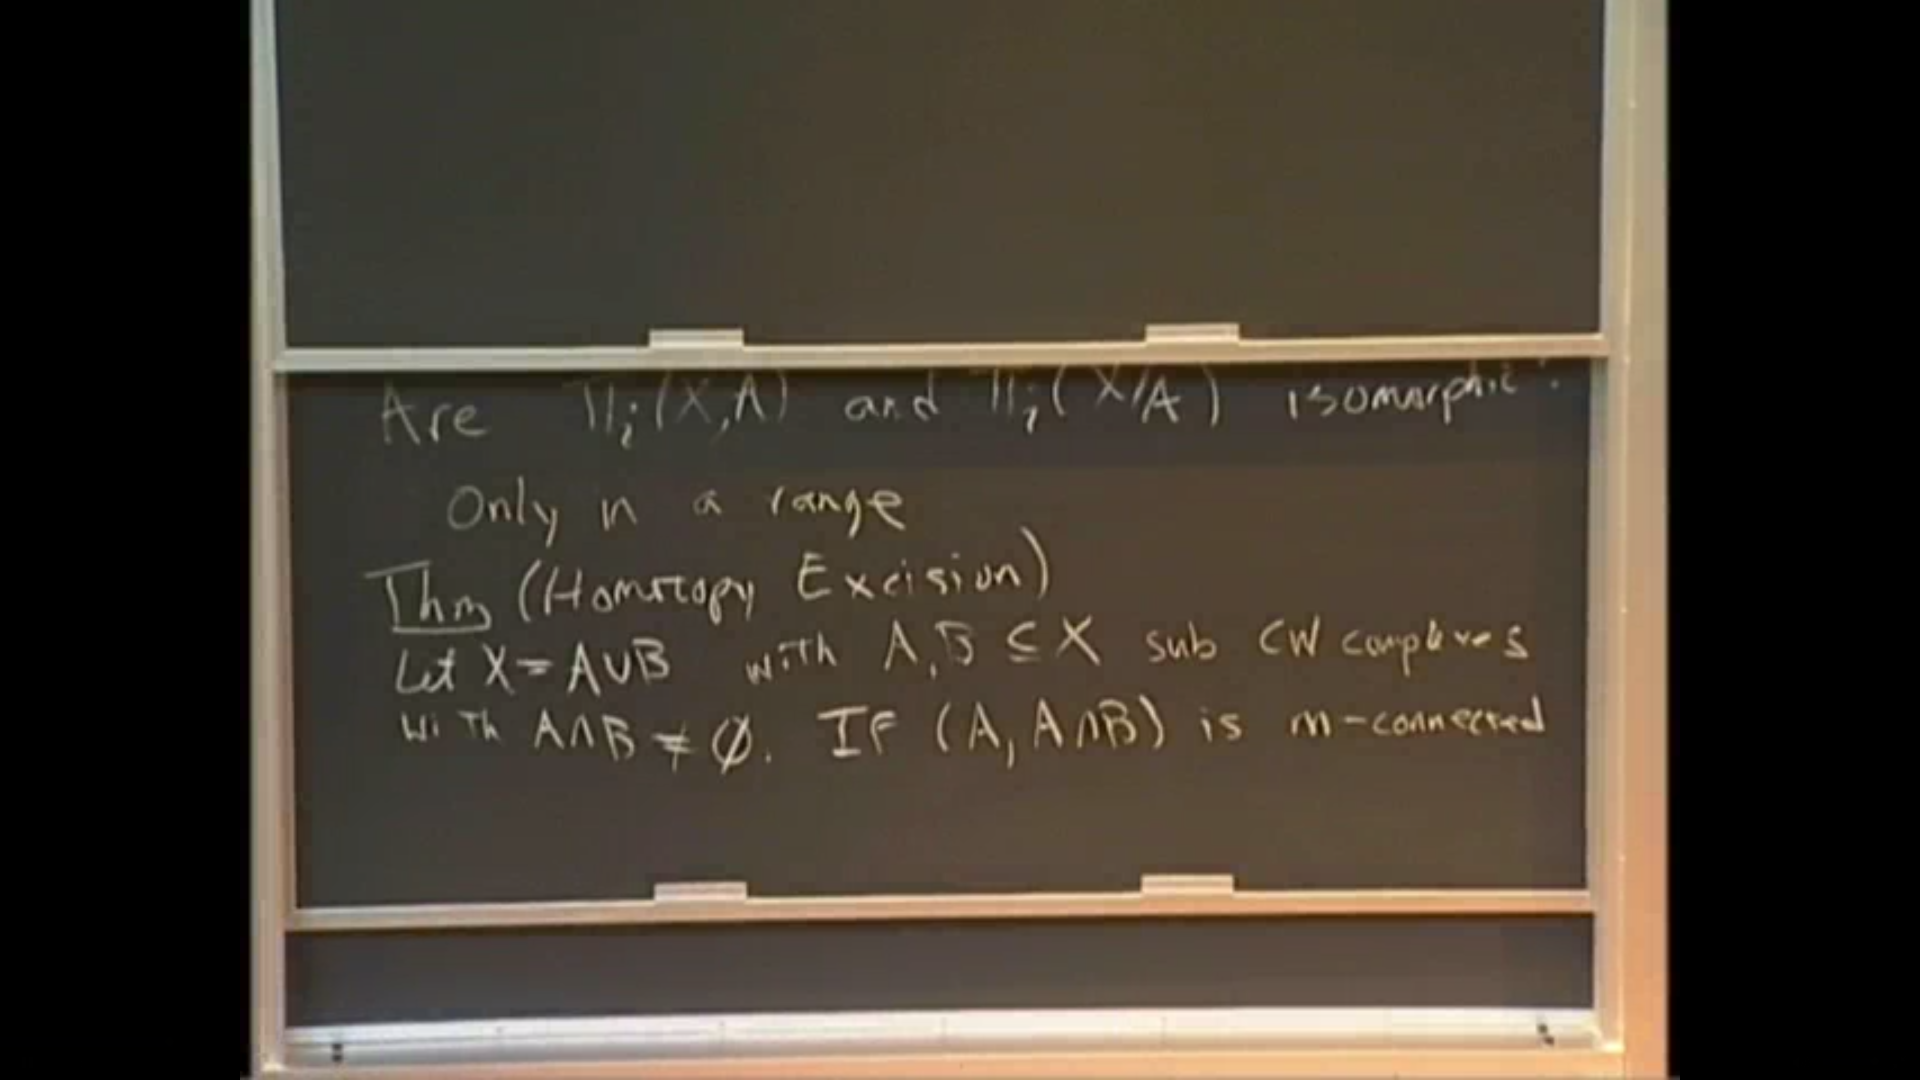 Are π_i(X,A) and π_i(X/A) isomorphic?
Only in a range
Thm (Homotopy Excision)
Let X = A∪B with A,B ⊆ X sub CW complexes
with A∩B ≠ ∅. If (A, A∩B) is m-connected